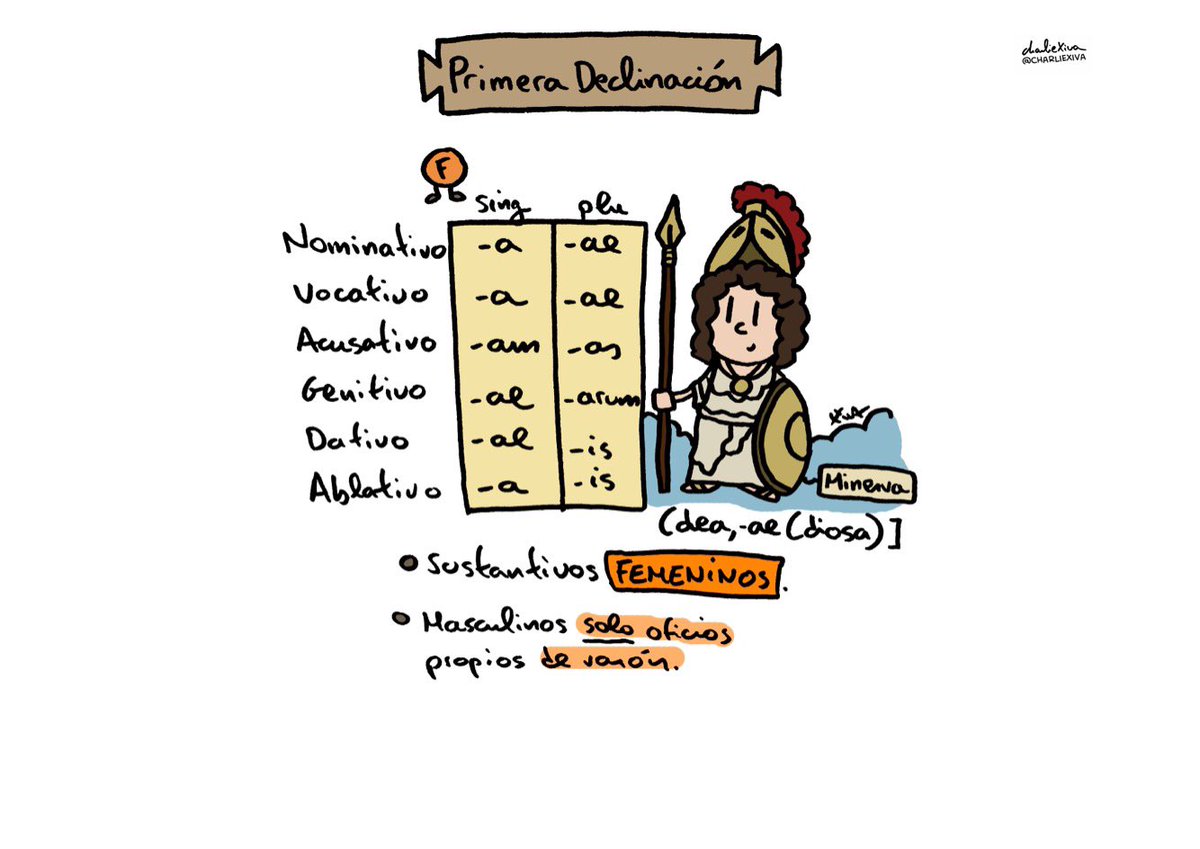 chaliexiva
@CHARLIEXIVA
Primera Declinación
F
sing plu
Nominativo -a -ae
Vocativo -a -ae
Acusativo -am -as
Genitivo -ae -arum
Dativo -ae -is
Ablativo -a -is
Minerva
(dea, -ae (diosa)]
Sustantivos FEMENINOS.
Masculinos solo oficios
propios de varón.